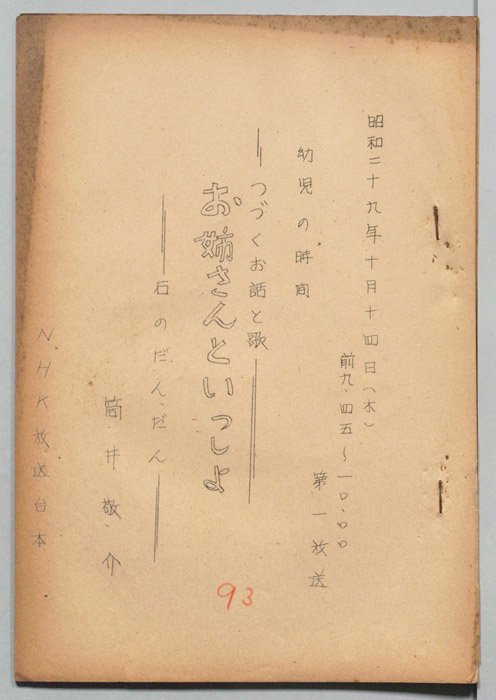 昭和二十九年十月十四日(木)
前九.四五~一〇.〇〇
第一放送
幼児の時間
つづくお話と歌
お姉さんといっしよ
石のだんだん
筒井敬介
NHK放送台本
93